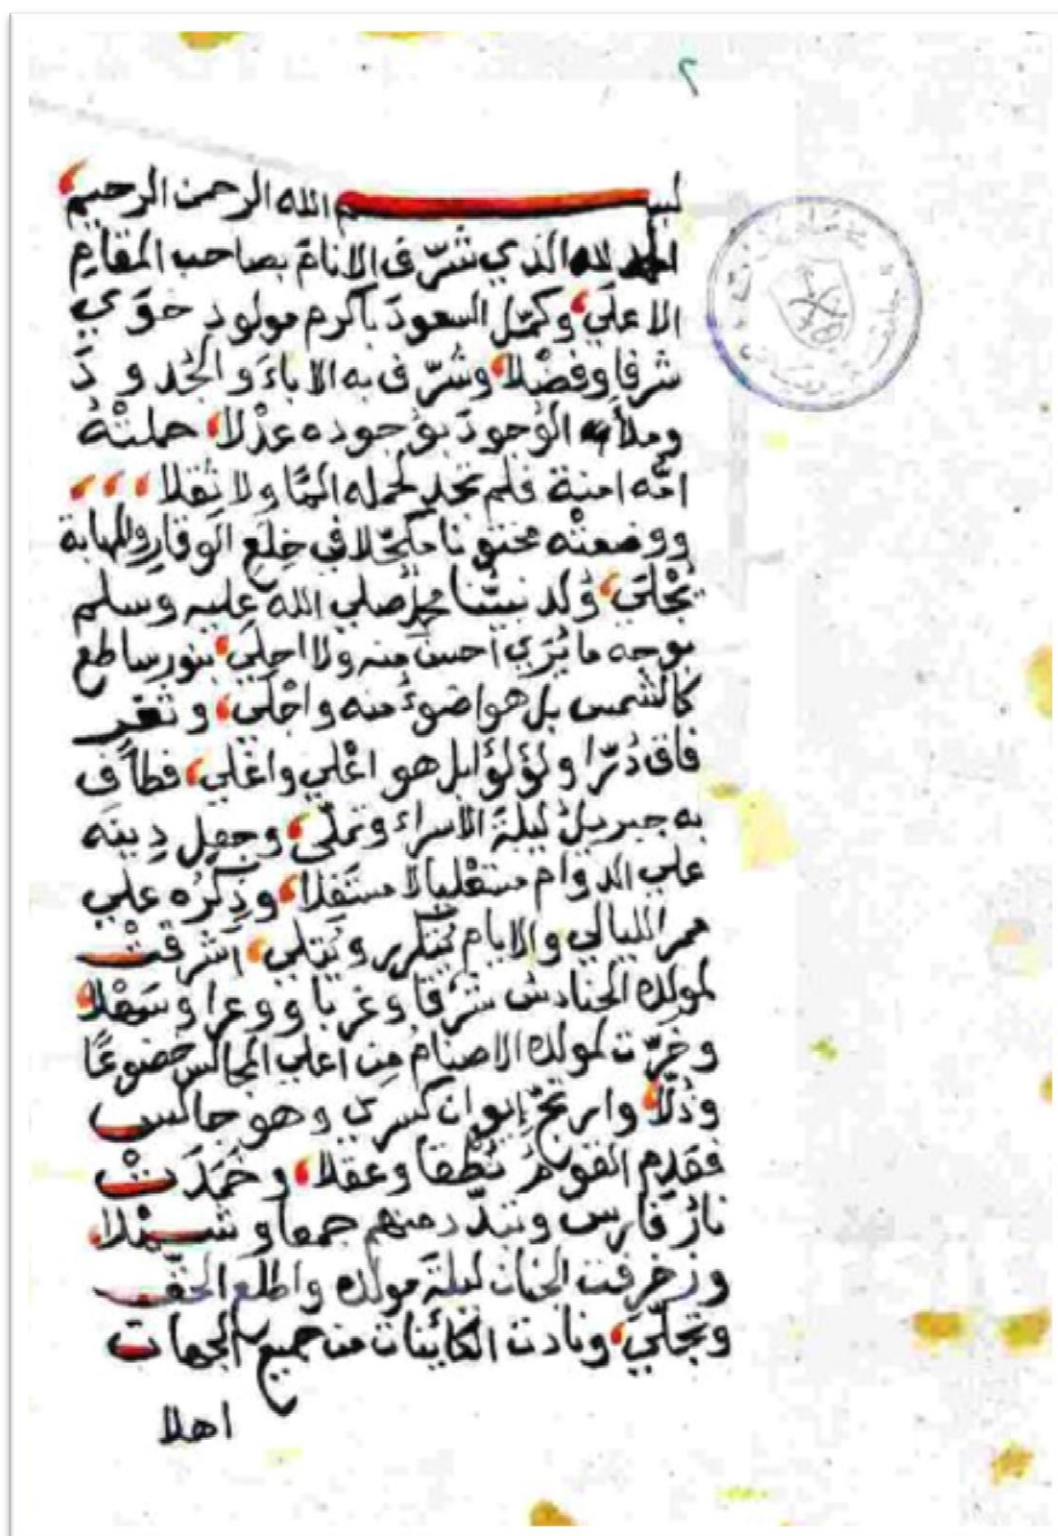 ٢
بسم الله الرحمن الرحيم
الحمد لله الذي شرّف الانام بصاحب المقام
الاعلي، وكمّل السعود باكرم مولود حوي
شرفا وفضلا، وشرّف به الاباء والجدود
وملأ الوجود بوجوده عدلا، حملته
امّه امنة فلم تجد لحمله المًا ولا ثقلا ،،،
ووضعته مختونا مكحّلا في خلع الوقار والمهابة
تجلي، ولد نبيّنا محمد صلي الله عليه وسلم
بوجه ما يري احسن منه ولا احلي، بنور ساطع
كالشمس بل هو اضوء منه واجلي، وثغر
فاق درّا ولؤلؤا بل هو اغلي واغلي، فطاف
به جبريل ليلة الاسراء وتملّي، وجعل دينه
علي الدوام مستعليا لا مستفلا، وذكره علي
ممر الليالي والايام يتكرر ويتلي، اشرقت
لمولده الحنادش شرقا وغربا ووعرا وسهلا،
وخرّت لمولده الاصنام من اعلي المجالس خضوعًا
وذلّا، وارتجّ إيوان كسري وهو جالس
فقدم القوم نطقا وعقلا، وخمدت
نار فارس وتبدّد منهم جمعا وشملا،
وزخرفت الجنان ليلة مولده واطلع الحقّ
وتجلّي، ونادت الكائينات من جميع الجهات
اهلا